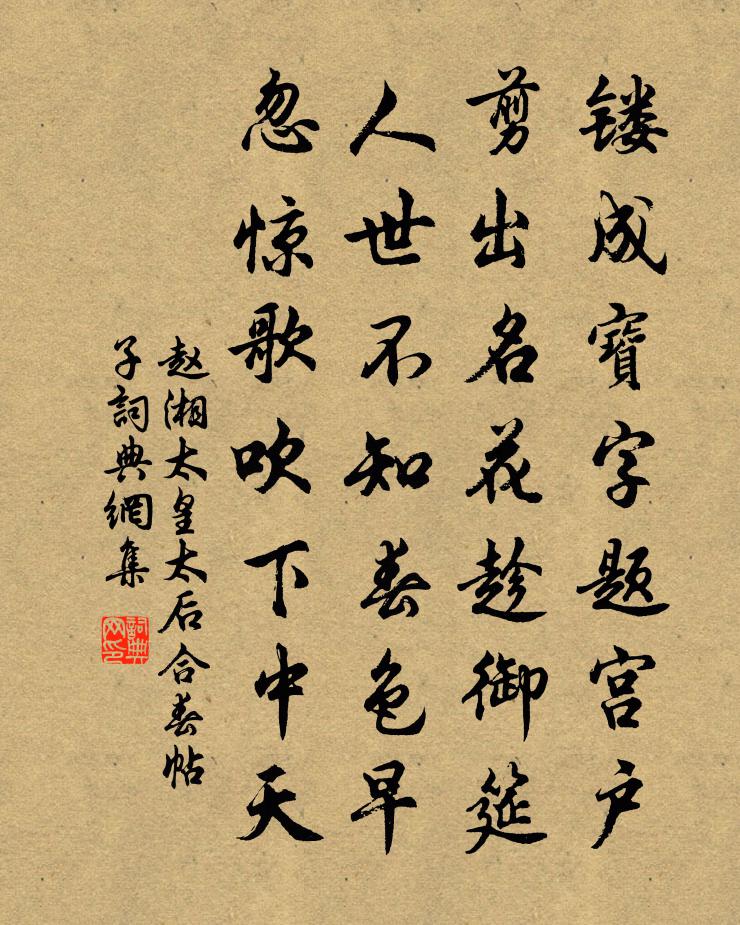 镂成寶字题宫户
剪出名花趁御筵
人世不知春色早
忽惊歌吹下中天
赵湘太皇太后合春帖
子詞典網集
詞典
网印